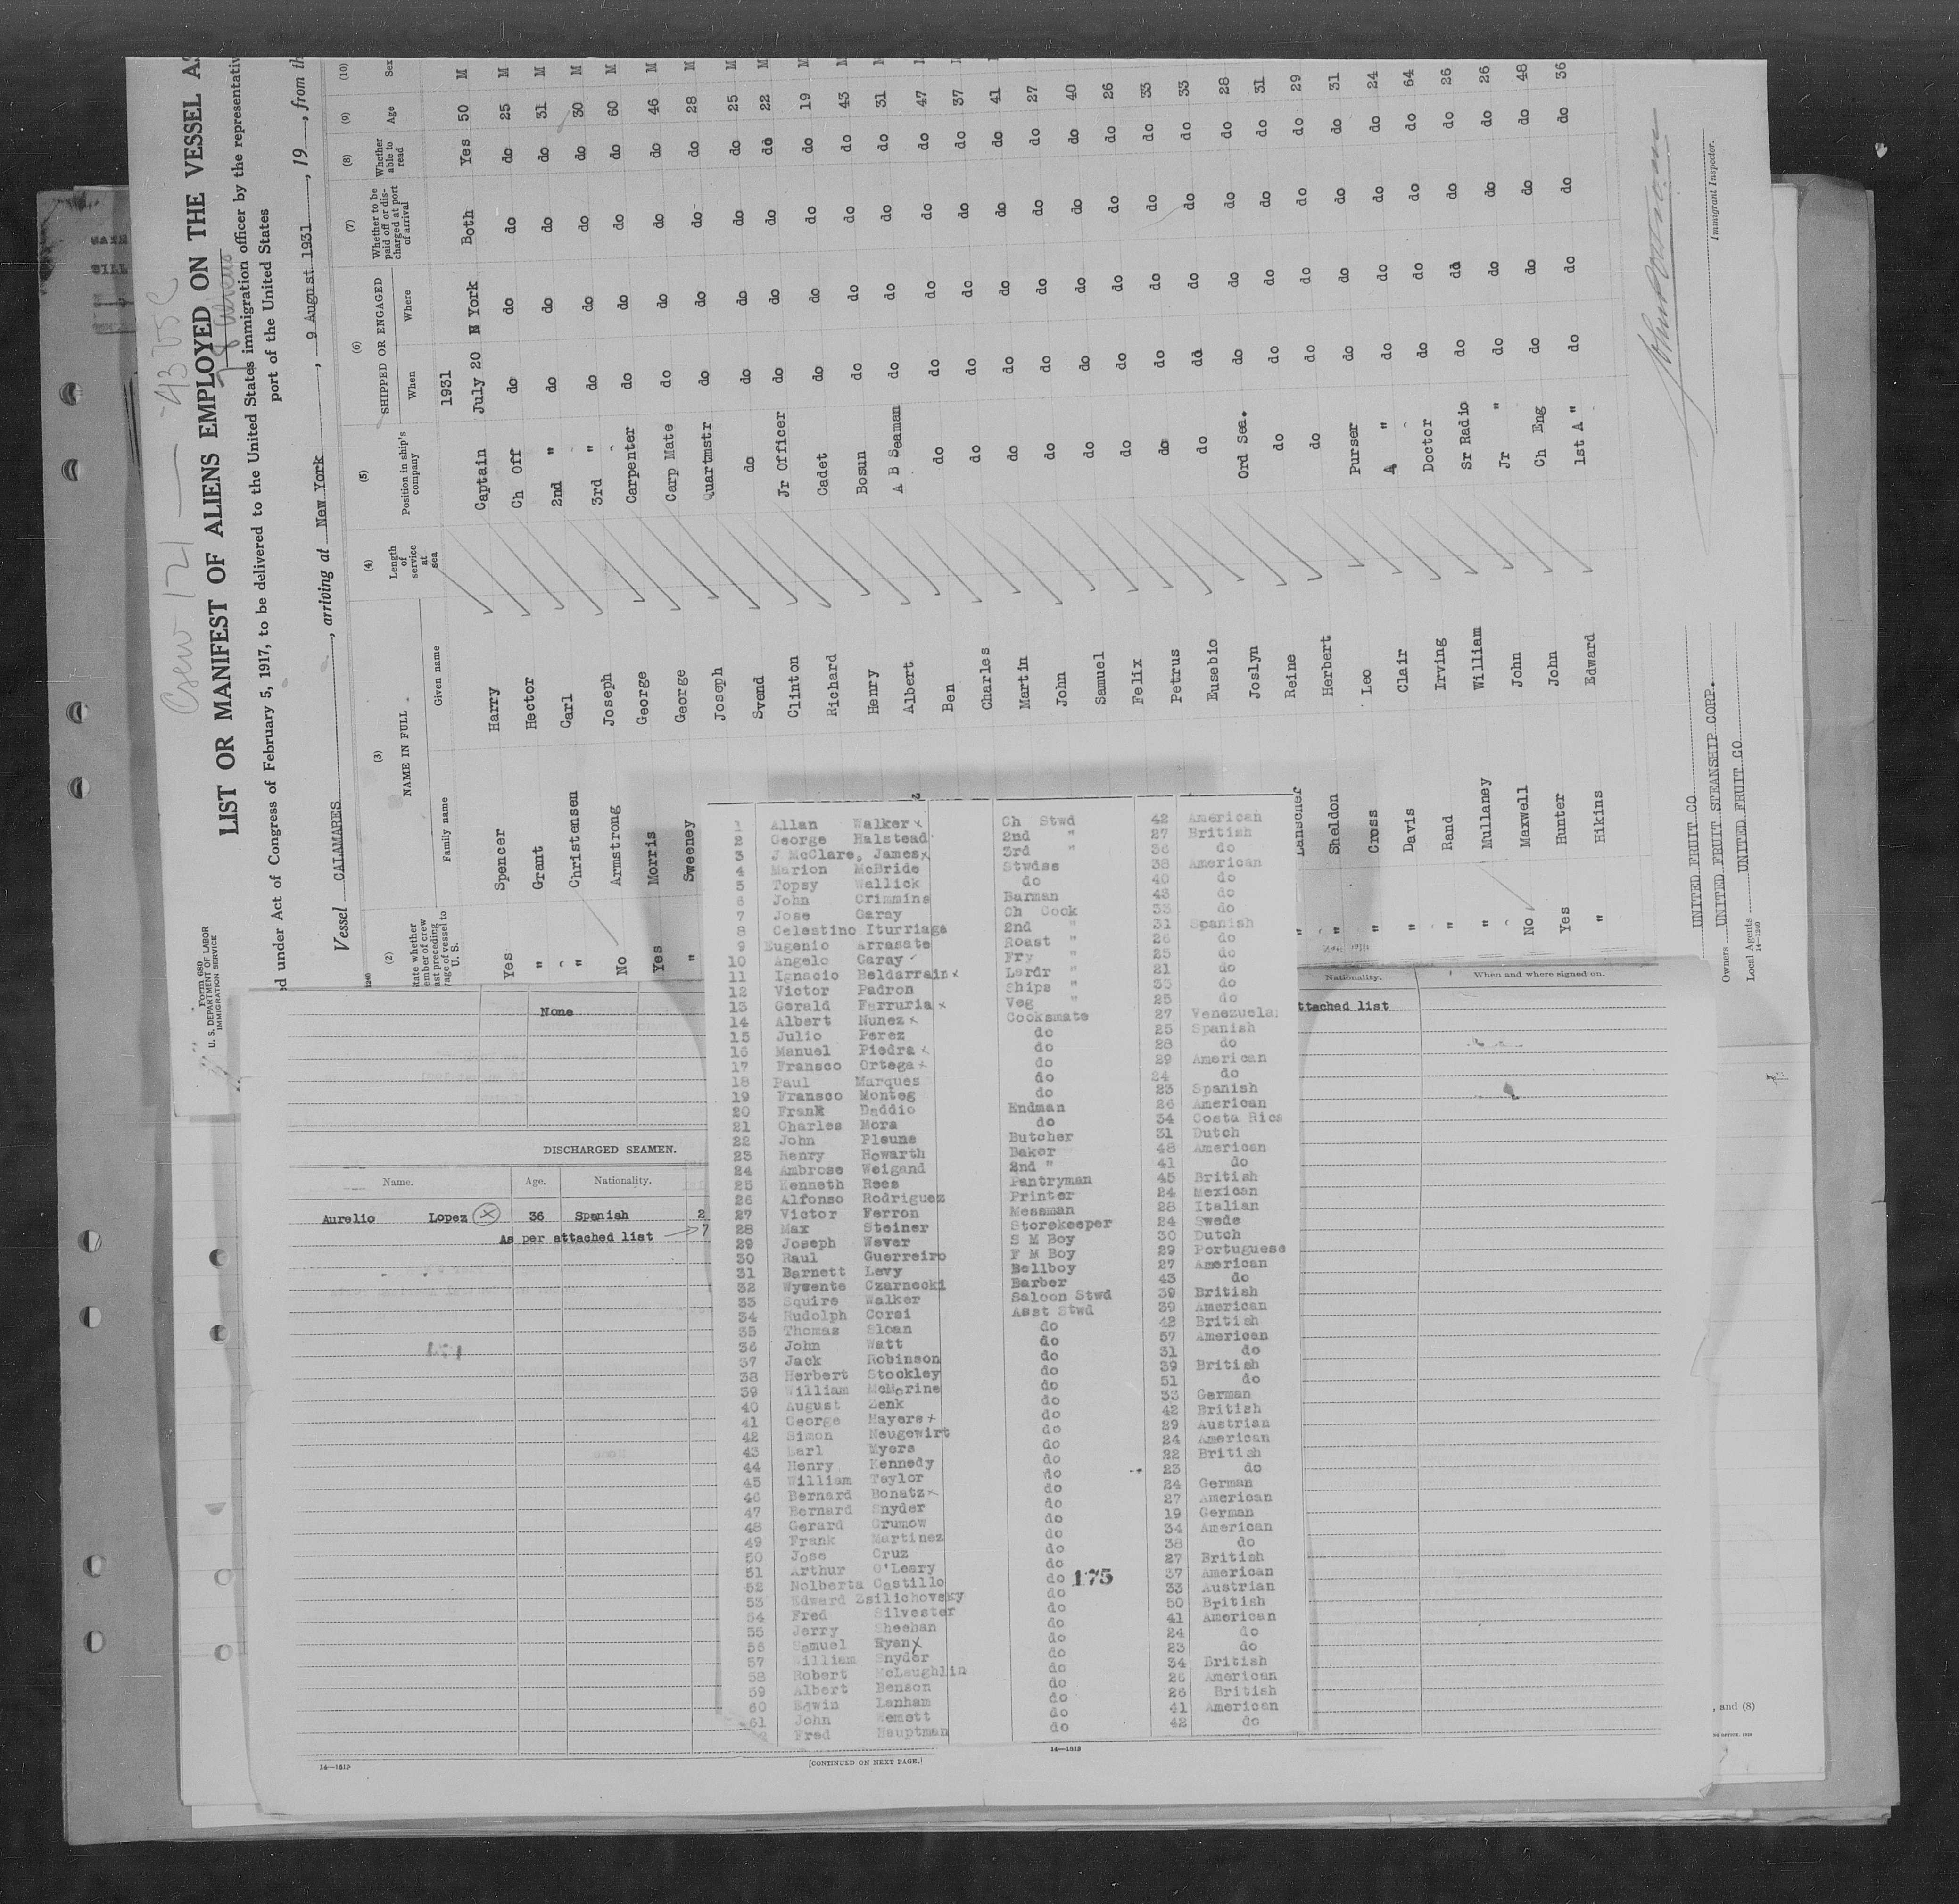 Form 680
U. S. DEPARTMENT OF LABOR
IMMIGRATION SERVICE
Crew 121 — 43 US C
LIST OR MANIFEST OF ALIENS EMPLOYED ON THE VESSEL AS
78 aliens
ed under Act of Congress of February 5, 1917, to be delivered to the United States immigration officer by the representativ
port of the United States
Vessel CALAMARES, arriving at New York, 9 August 1931, 19, from th
(2) (3) (4) (5) (6) (7) (8) (9) (10)
NAME IN FULL Length of service at sea Position in ship's company SHIPPED OR ENGAGED Whether to be paid off or discharged at port of arrival Whether able to read Age Sex
Family name Given name When Where
1931
Yes Spencer Harry Captain July 20 N York Both Yes 50 M
" Grant Hector Ch Off do do do do 25 M
" Christensen Carl 2nd " do do do do 31 M
No Armstrong Joseph 3rd " do do do do 30 M
Yes Morris George Carpenter do do do do 60 M
" Sweeney George Carp Mate do do do do 46 M
Joseph Quartmstr do do do do 28 M
Svend do do do do do 25 M
Clinton Jr Officer do do do do 22 M
Richard Cadet do do do do 19 M
Henry Bosun do do do do 43 M
Albert A B Seaman do do do do 31 M
Ben do do do do do 47
Charles do do do do do 37
Martin do do do do do 41
John do do do do do 27
Samuel do do do do do 40
Felix do do do do do 26
Petrus do do do do do 33
Eusebio do do do do do 33
Joslyn Ord Sea. do do do do 28
" Reine do do do do do 31
" Sheldon Herbert do do do do do 29
" Cross Leo Purser do do do do 31
" Davis Clair A " do do do do 24
" Rand Irving Doctor do do do do 64
" Mullaney William Sr Radio do do do do 26
No Maxwell John Jr " do do do do 26
Yes Hunter John Ch Eng do do do do 48
" Hikins Edward 1st A " do do do do 36
UNITED FRUIT CO
Owners UNITED FRUIT STEAMSHIP CORP.
Local Agents UNITED FRUIT CO
14—1240
Immigrant Inspector.
None
DISCHARGED SEAMEN.
Name. Age. Nationality.
Aurelio Lopez 36 Spanish 2
As per attached list 7
Nationality. When and where signed on.
ttached list
1 Allan Walker x Ch Stwd 42 American
2 George Halstead 2nd " 27 British
3 J McClare, James x 3rd " 36 do
4 Marion McBride Stwdss 38 American
5 Topsy Wallick do 40 do
6 John Crimmins Barman 43 do
7 Jose Garay Ch Cook 33 do
8 Celestino Iturriaga 2nd " 31 Spanish
9 Eugenio Arrasate Roast " 26 do
10 Angelo Garay Fry " 25 do
11 Ignacio Beldarrain x Lardr " 21 do
12 Victor Padron Ships " 33 do
13 Gerald Farruria x Veg " 25 do
14 Albert Nunez x Cooksmate 27 Venezuela
15 Julio Perez do 25 Spanish
16 Manuel Piedra x do 28 do
17 Fransco Ortega x do 29 American
18 Paul Marques do 24 do
19 Fransco Monteg do 23 Spanish
20 Frank Daddio Endman 26 American
21 Charles Mora do 34 Costa Rica
22 John Pleune Butcher 31 Dutch
23 Henry Howarth Baker 48 American
24 Ambrose Weigand 2nd " 41 do
25 Kenneth Rees Pantryman 45 British
26 Alfonso Rodriguez Printer 24 Mexican
27 Victor Ferron Messman 28 Italian
28 Max Steiner Storekeeper 24 Swede
29 Joseph Wever S M Boy 30 Dutch
30 Raul Guerreiro F M Boy 29 Portuguese
31 Barnett Levy Bellboy 27 American
32 Wywente Czarnecki Barber 43 do
33 Squire Walker Saloon Stwd 39 British
34 Rudolph Corsi Asst Stwd 39 American
35 Thomas Sloan do 42 British
36 John Watt do 57 American
37 Jack Robinson do 31 do
38 Herbert Stockley do 39 British
39 William McMorine do 51 do
40 August Zenk do 33 German
41 George Mayers x do 42 British
42 Simon Neugewirt do 29 Austrian
43 Earl Myers do 24 American
44 Henry Kennedy do 22 British
45 William Taylor do 23 do
46 Bernard Bonatz x do 24 German
47 Bernard Snyder do 27 American
48 Gerard Grumow do 19 German
49 Frank Martinez do 34 American
50 Jose Cruz do 38 do
51 Arthur O'Leary do 27 British
52 Nolberta Castillo do 37 American
53 Edward Zsilichovsky do 33 Austrian
54 Fred Silvester do 50 British
55 Jerry Sheehan do 41 American
56 Samuel Ryan x do 24 do
57 William Snyder do 23 do
58 Robert McLaughlin do 34 British
59 Albert Benson do 26 American
60 Edwin Lanham do 26 British
61 John Wemett do 41 American
Fred Hauptman do 42 do
175
14—1613
[CONTINUED ON NEXT PAGE.]
14—1613
, and (8)